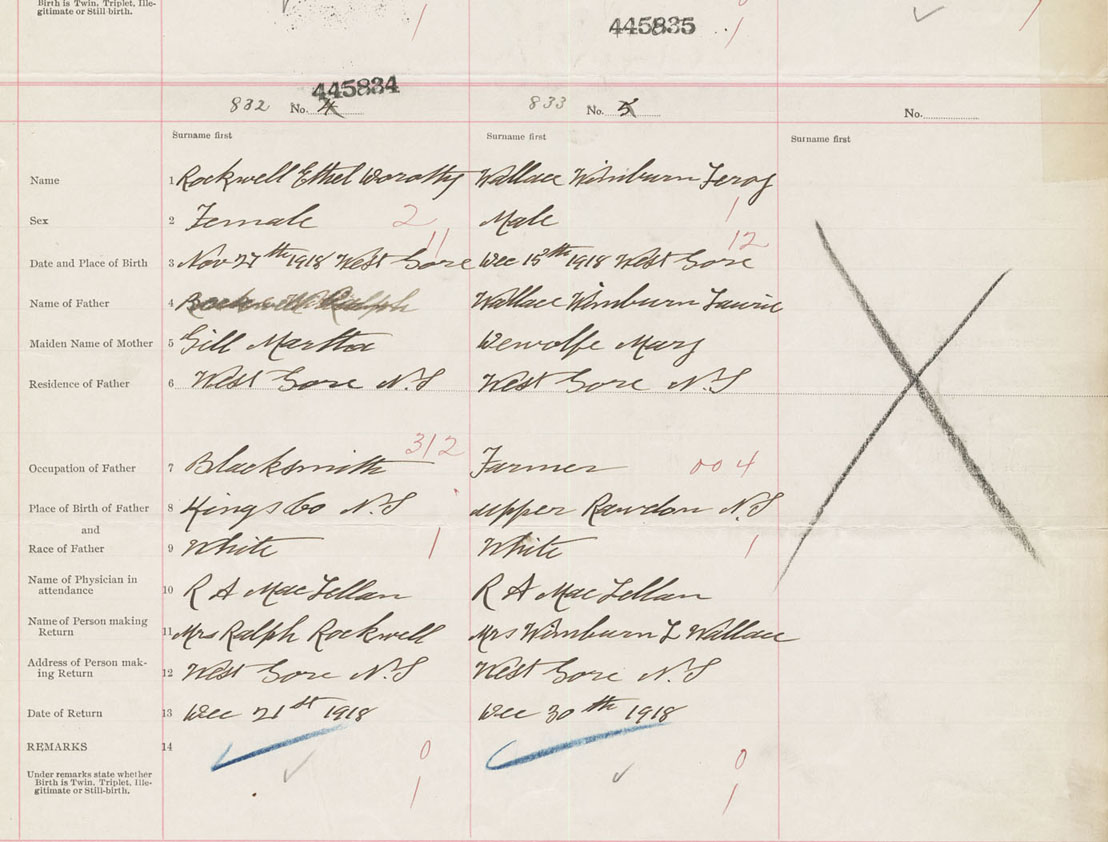 Birth is Twin, Triplet, Ille-
gitimate or Still-birth.
1
445835
1
445834
832 No. 4
833 No. 5
No.
Surname first
Surname first
Surname first
Name 1 Rockwell Ethel Dorothy Wallace Winburn Leroy
Sex 2 Female 2 Male 1
11 12
Date and Place of Birth 3 Nov 27th 1918 West Gore Dec 15th 1918 West Gore
Name of Father 4 Rockwell Ralph Wallace Winburn Laurie
Maiden Name of Mother 5 Gill Martha Dewolfe Mary
Residence of Father 6 West Gore N.S West Gore N.S
312
Occupation of Father 7 Blacksmith Farmer 004
Place of Birth of Father 8 Kings Co N.S upper Rawdon N.S
and
Race of Father 9 White 1 White 1
Name of Physician in
attendance 10 R A MacLellan R A MacLellan
Name of Person making
Return 11 Mrs Ralph Rockwell Mrs Winburn L Wallace
Address of Person mak-
ing Return 12 West Gore N.S West Gore N.S
Date of Return 13 Dec 21st 1918 Dec 30th 1918
REMARKS 14 0 0
Under remarks state whether
Birth is Twin, Triplet, Ille-
gitimate or Still-birth.
1 1